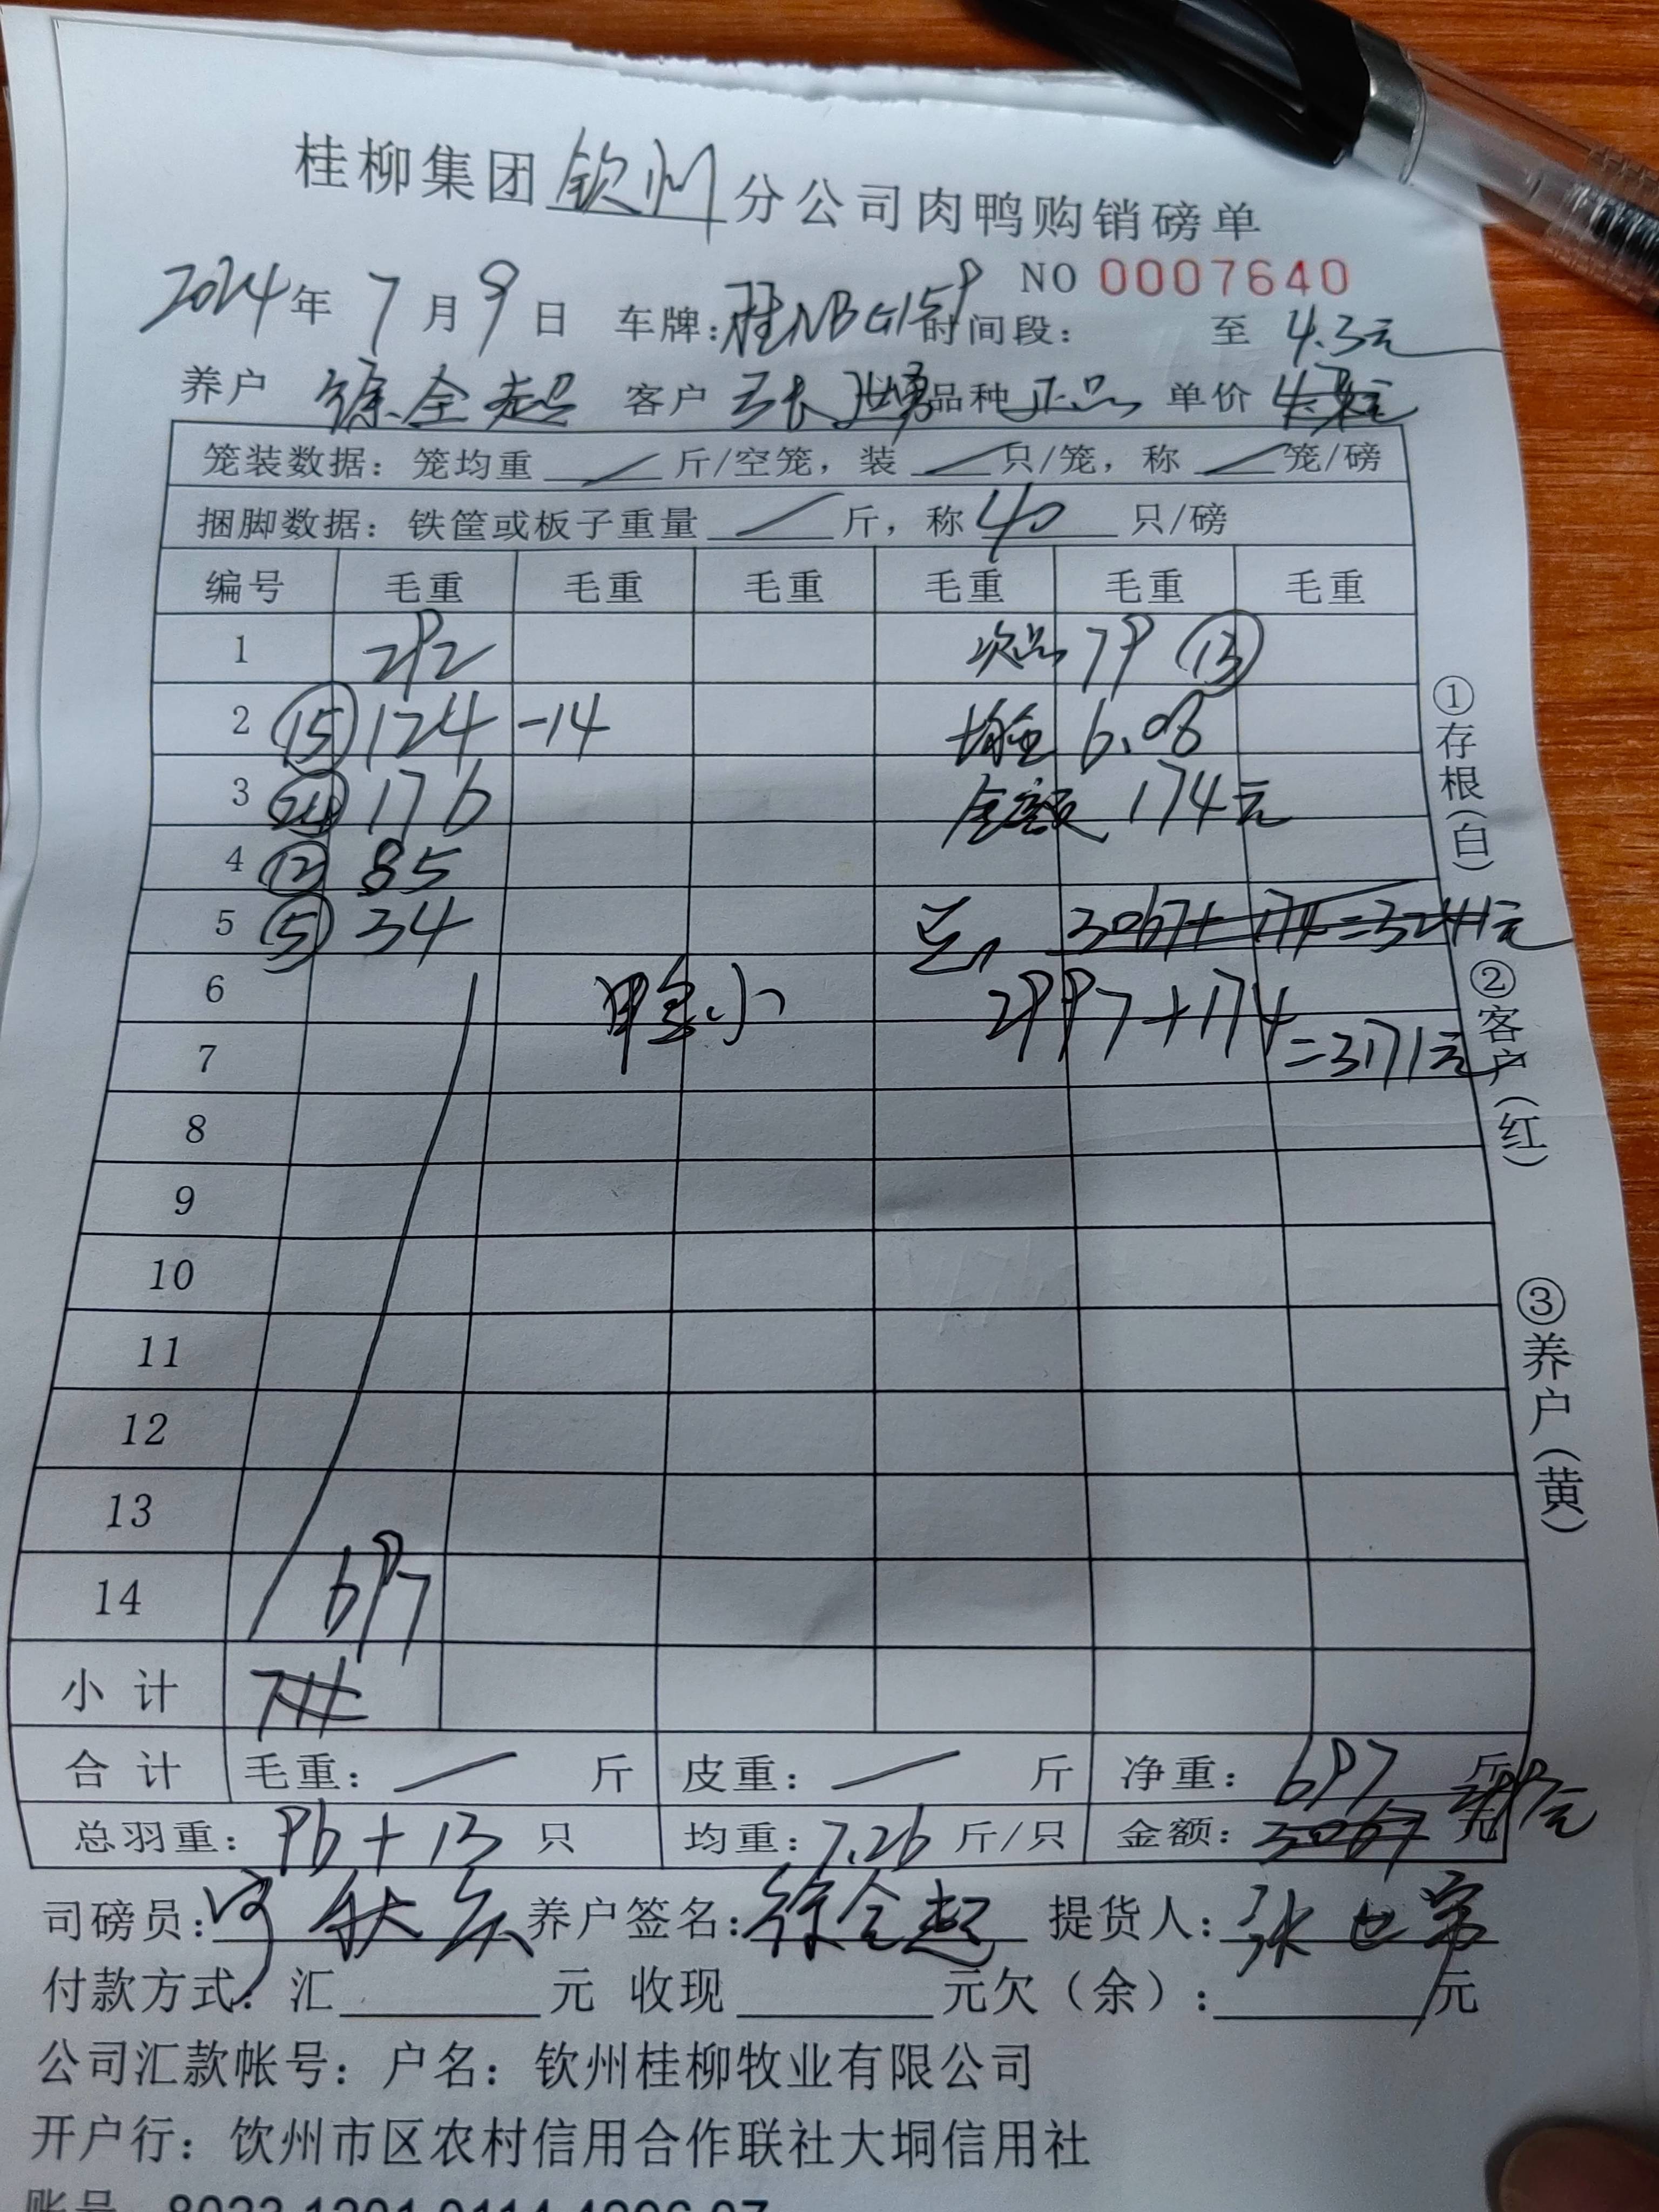 桂柳集团 钦州 分公司肉鸭购销磅单
NO 0007640
2024年 7月9日 车牌:桂NBG159 时间段: 至 4.3元
养户 徐全起 客户 品种 正品 单价
笼装数据: 笼均重 斤/空笼, 装 只/笼, 称 笼/磅
捆脚数据: 铁筐或板子重量 斤, 称 40 只/磅
编号 毛重 毛重 毛重 毛重 毛重 毛重
1 292 次品 79 ⑬
2 ⑮ 124 -14 均重 6.08
3 ㉔ 176 金额 174元
4 ⑫ 85
5 ⑤ 34 总, 3067+174=3241元
6 鸭小 2997+174
7 =3171元
8
9
10
11
12
13
14 697
小计 711
合计 毛重: 斤 皮重: 斤 净重: 697 斤
2997元
总羽重: 96+13 只 均重: 7.26 斤/只 金额: 3067
司磅员: 养户签名: 徐全起 提货人:
付款方式: 汇 元 收现 元欠(余): 元
公司汇款帐号: 户名: 钦州桂柳牧业有限公司
开户行: 饮州市区农村信用合作联社大垌信用社
①存根(白)
②客户(红)
③养户(黄)